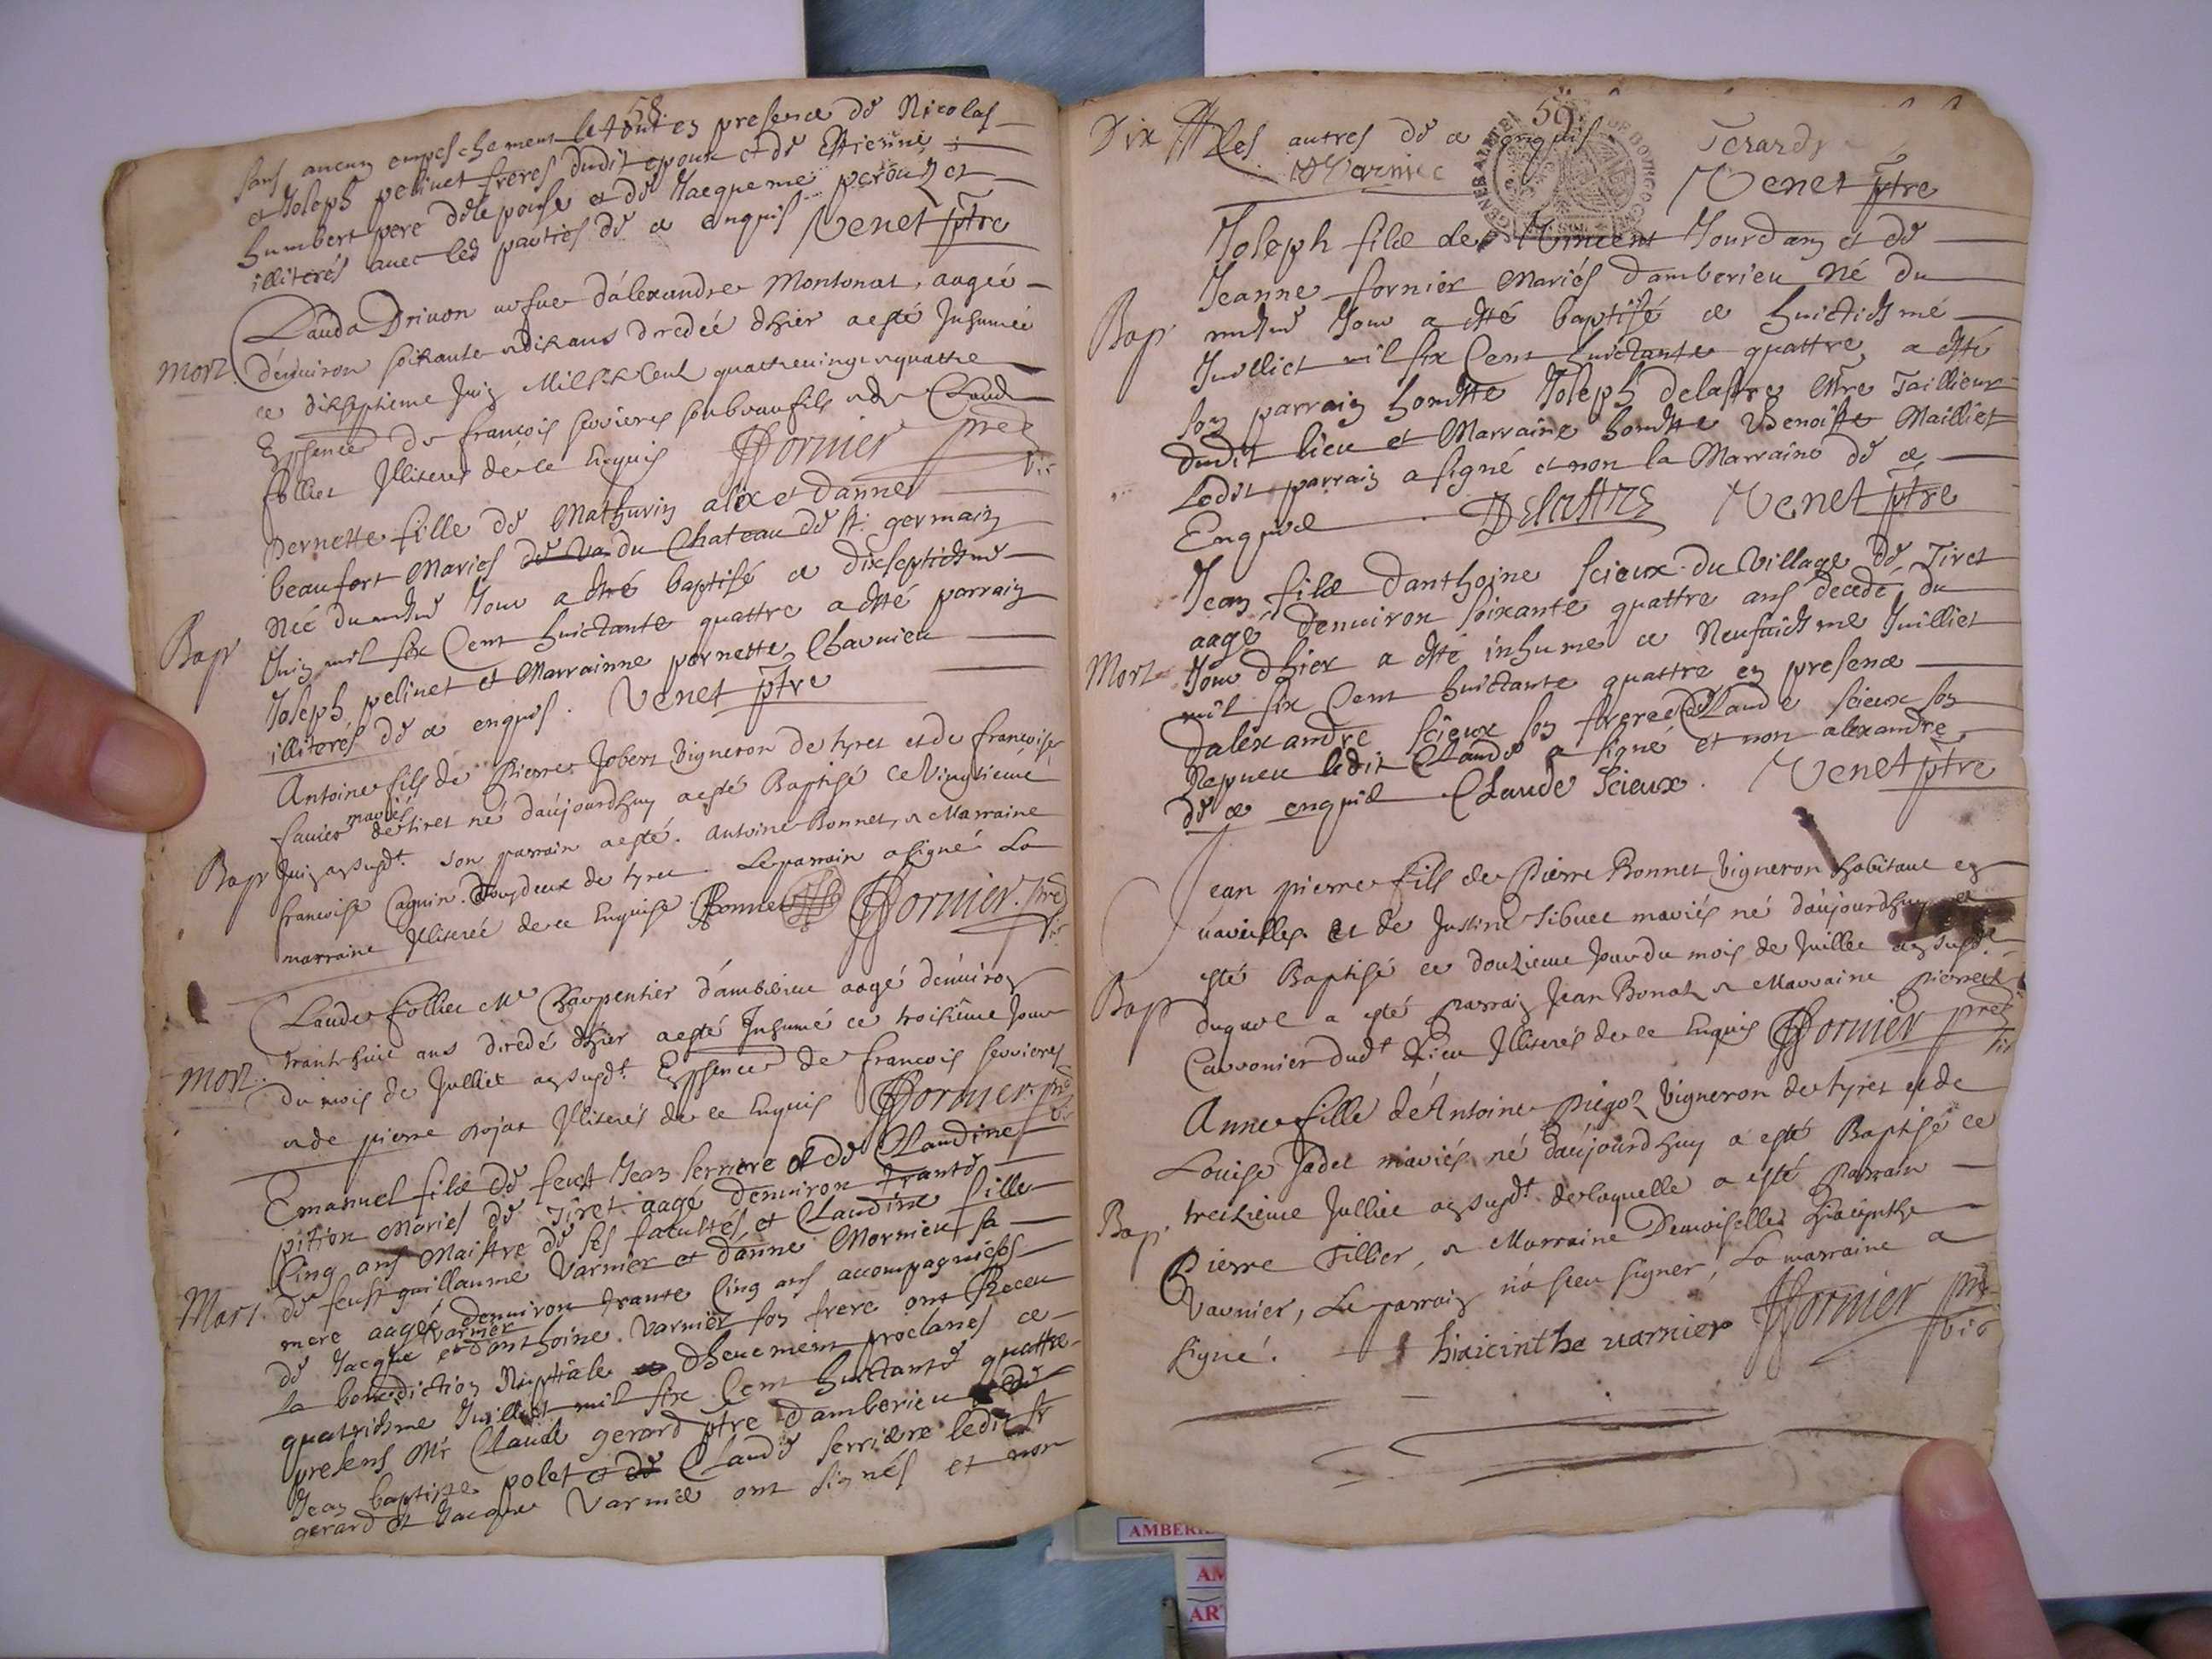 58
sans aucun empeschement le tout en presence de Nicolas
et Joseph pelinet freres dudit epoux et de Estienne
humbert pere de lepouse et de Jacqueme perouz et
illiterés avec les parties de ce enquis Venet ptre
Clauda Drivon vefue d'alexandre Montonat, aagée
mort d'énuiron soixante & dix ans decedée dhier a esté Inhumée
ce dixseptieme Juin Mil six Cent quatrevingt & quatre
En psence de francois seruieres son beaufils & de Claude
follier Illiteres de ce Enquis fornier pre
vic
Pernette fille de Mathurin alix et danne
beaufort Mariés du Chateau de st. germain
née du mesme Jour a esté baptisé ce dixseptiesme
Bap Juin mil six Cent huictante quattre a esté parrain
Joseph pelinet et Marrainne pernette Chavuieu
illiterés de ce enquis. Venet ptre
Antoine fils de Pierre Jobert vigneron de tyret et de francoise
mariés
favier de tiret né daujourdhuy a esté Baptisé ce vingtieme
Bap Juin an susdt. son parrain a esté. Antoine Bonnet, & Marraine
francoise Cagnin. tous deux de tyret. Le parrain a signé La
marraine Illiterée de ce Enquise Bonnet fornier. pre
vic
Claude follier Me Charpentier d'ambérieu aagé d'enuiron
trante huit ans decedé dhier a esté Inhumé ce troisieme Jour
mort. du mois de Julliet an susdt. En psence de francois seruieres
& de pierre pojat Illiterés de ce Enquis fornier. pre
vic
Emanuel filz de feust Jean serriere et de Claudine
pition Mariés de Tiret. aagé denuiron trante
Cinq ans Maistre de ses facultés, et Claudine fille
Mari. de feust guillaume Varnier et d'anne Mornieu sa
mere aagée denuiron trante Cinq ans accompagniés
varnier
de Jacque et d'anthoine. Varnier son frere ont Receu
la benediction Nuptiale dheuement proclames ce
quatriesme Juilliet mil six Cent huictante quattre
presens Mr Claude gerard ptre d'amberieu
Jean baptiste polet Claude serriere ledit sr
gerard et Jacque Varnier ont signés et non
59
les autres de ce enquis Gerard
Varnier Venet ptre
Joseph filz de Vincent Jourdan et de
Jeanne fornier Mariés d'amberieu né du
Bap mesme Jour a esté baptisé ce huictiesme
Juilliet mil six Cent huictante quattre, a esté
son parrain honneste Joseph delastre Mre Taillieur
dudit lieu et Marraine honneste Benoiste Mailliet
Ledit parrain a signé et non la Marraine de ce
Enquise Delastre Venet ptre
Jean filz d'anthoine scieux du Village de Tiret
aagé denuiron soixante quattre ans decedé du
Mort Jour dhier a esté inhumé ce Neufuiesme Juilliet
mil six Cent huictante quattre en presence
d'alexandre scieux son frere de Claude scieux son
Nepueu ledit Claude a signé et non alexandre
de ce enquis Claude Scieux. Venet ptre
Jean pierre fils de Pierre Bonnet vigneron habitant en
vareilles et de Justine Sibuet mariés né daujourdhuy a
esté Baptisé ce douzieme Jour du mois de Juillet an susdt.
Bap duquel a esté parrain Jean Bonat & Marraine pierrette
Carronier dudt Lieu Illiterés de ce Enquis fornier pre
vic
Anne fille de Antoine Piegoz vigneron de tyret et de
Louise Jadet mariés né daujourdhuy a esté Baptisé ce
Bap. treizieme Julliet an susdt. de laquelle a esté parrain
Pierre Tillier, & Marraine Demoiselle hiacynthe
Varnier, Le parrain n'a sceu signer, La marraine a
signé. hiacinthe varnier fornier pre
vic
AMBERI
AM
AR